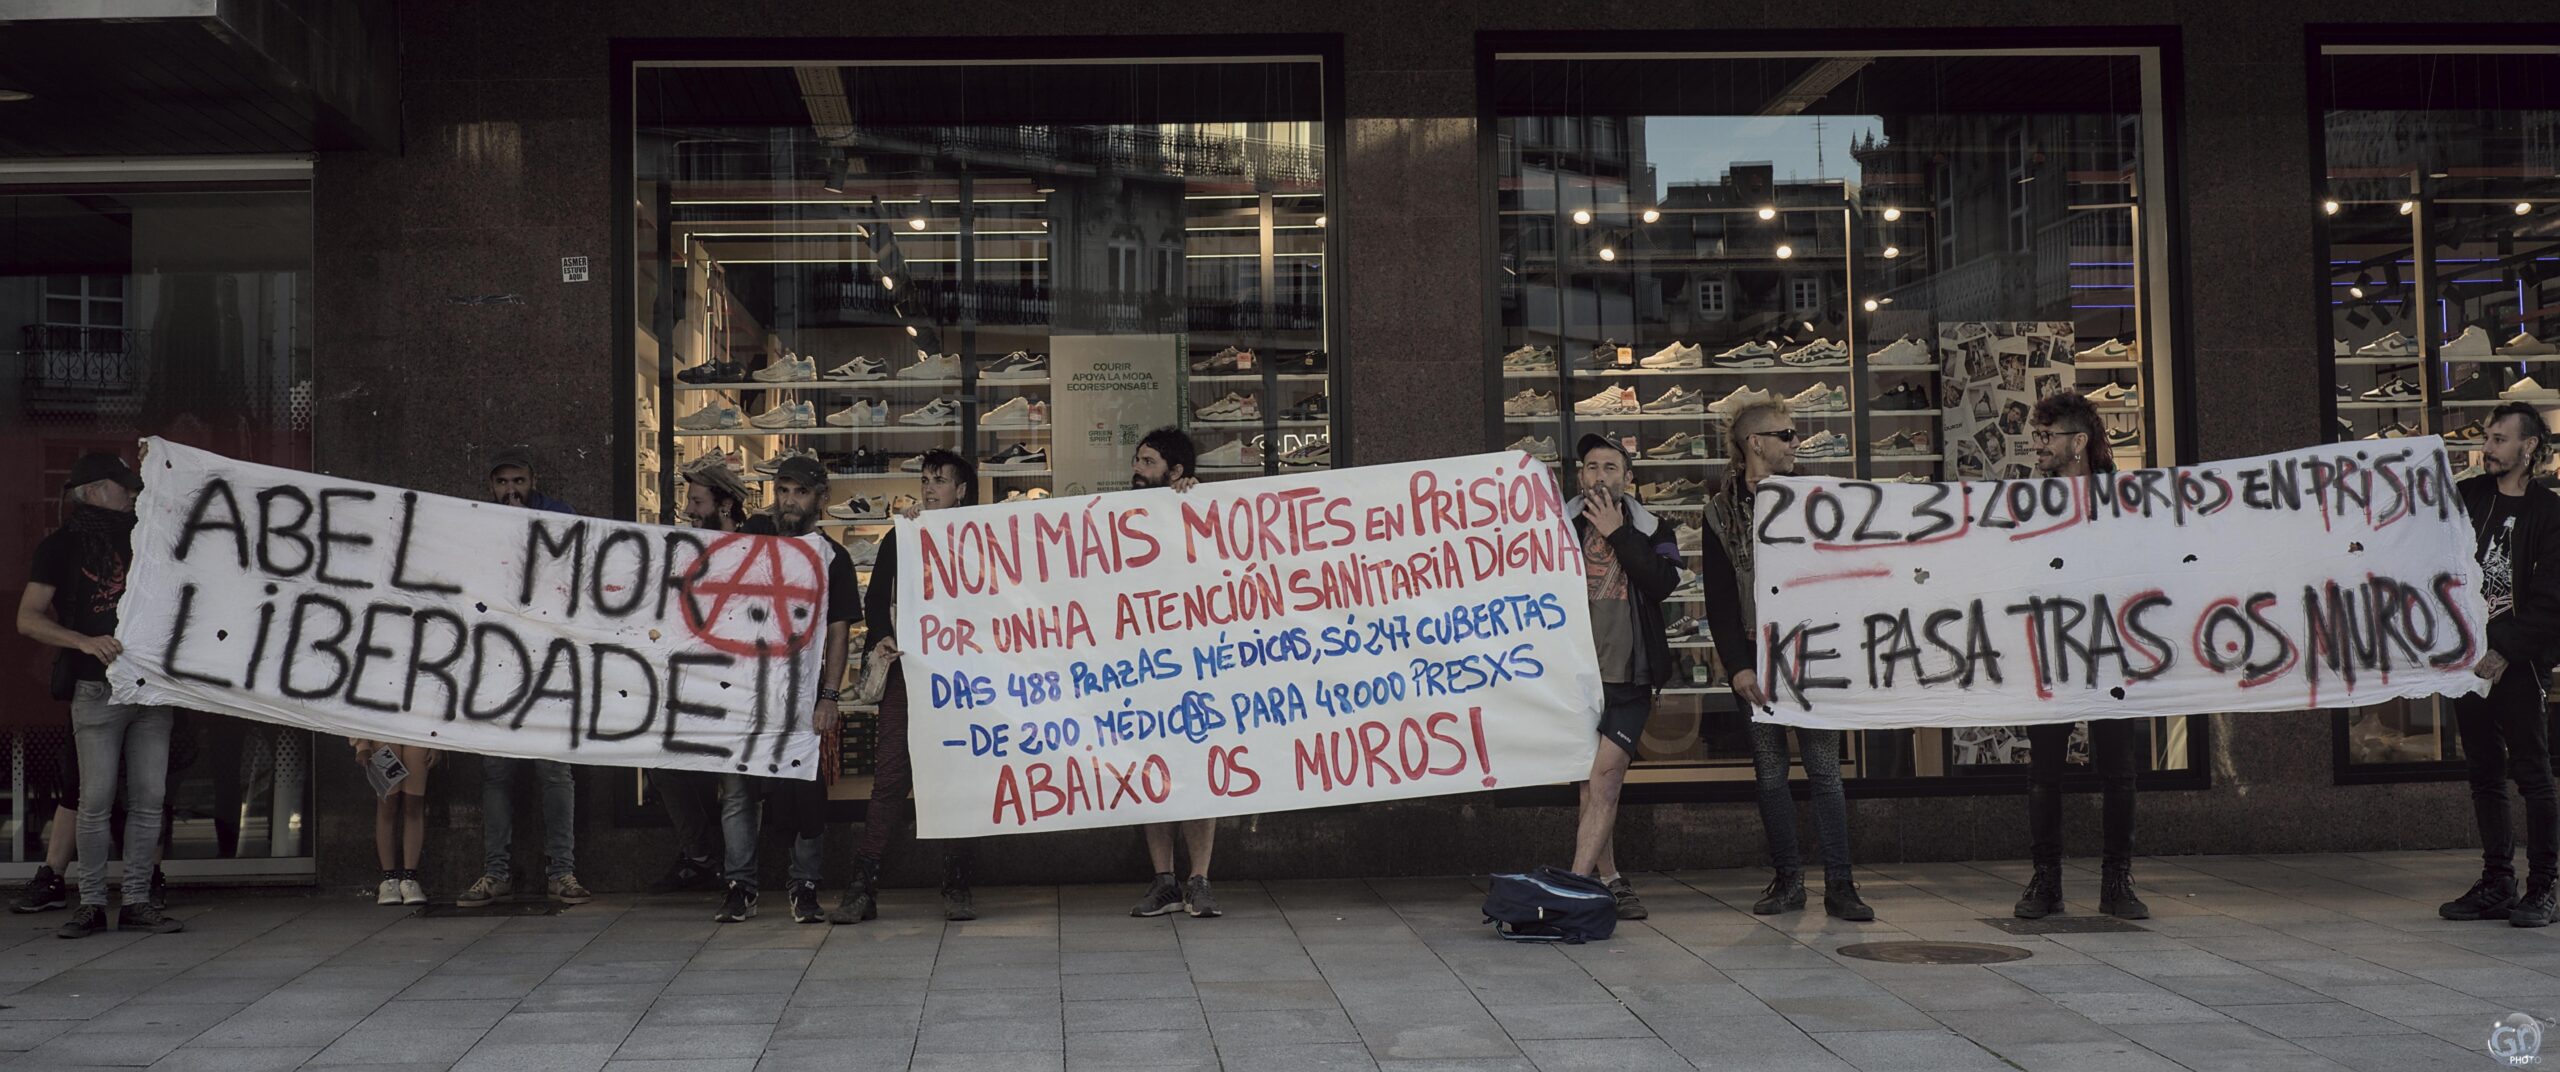 ASMER
ESTUVO
AQUI
COURIR
APOYA LA MODA
ECORESPONSABLE
GREEN
SPIRIT
ABEL MORA
LIBERDADE!!
NON MÁIS MORTES EN PRISIÓN
POR UNHA ATENCIÓN SANITARIA DIGNA
DAS 488 PRAZAS MÉDICAS, SÓ 247 CUBERTAS
-DE 200 MÉDIC@S PARA 48.000 PRESXS
ABAIXO OS MUROS!
2023: 200 MORTOS EN PRISION
KE PASA TRAS OS MUROS
Gr
PHOTO